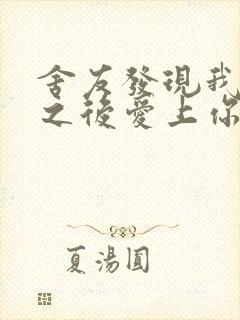 舍友發現我
之後愛上你
夏湯圓